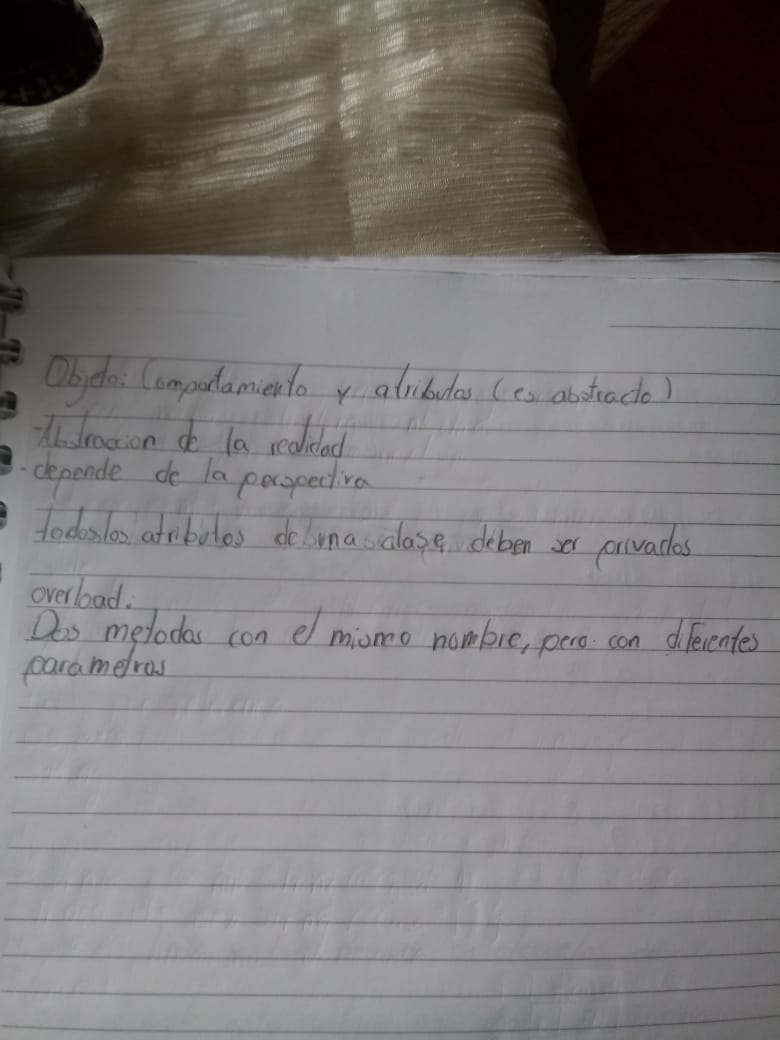 Objeto: Comportamiento y atributos (es abstracto)
-Abstraccion de la realidad
-depende de la perspectiva
todos los atributos de una clase deben ser privados
overload.
Dos metodos con el mismo nombre, pero con diferentes
parametros